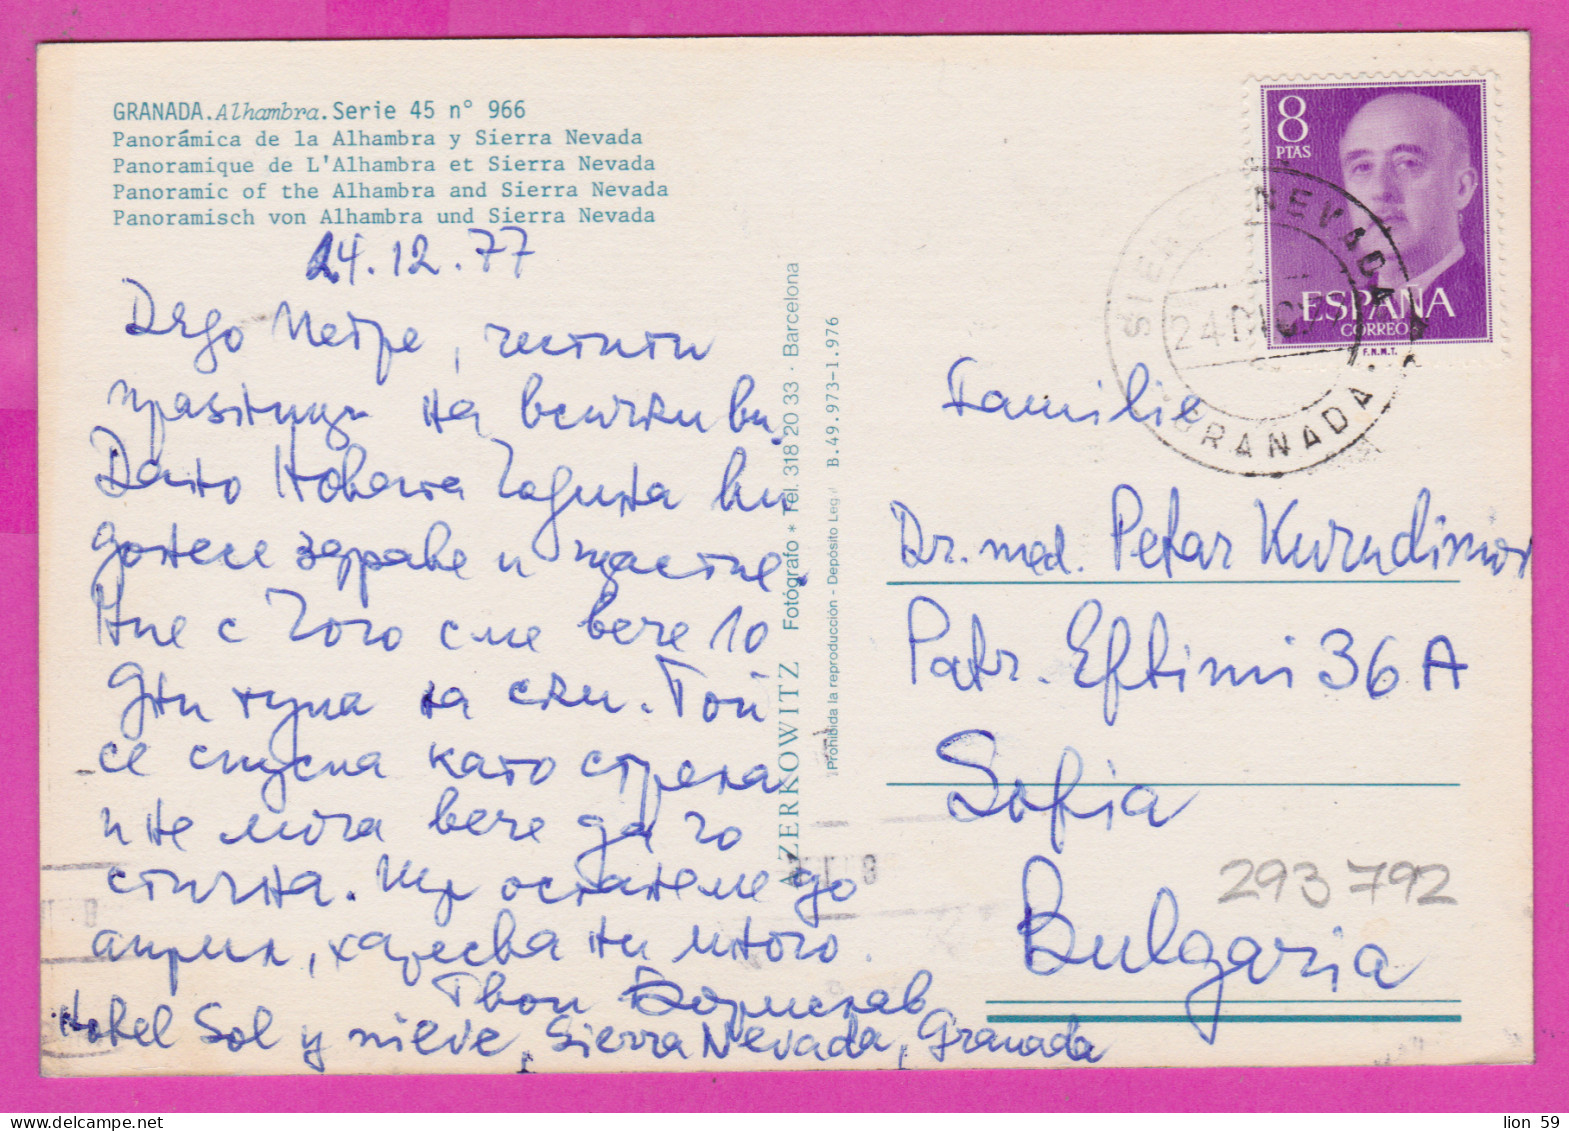 GRANADA.Alhambra.Serie 45 n° 966
Panorámica de la Alhambra y Sierra Nevada
Panoramique de L'Alhambra et Sierra Nevada
Panoramic of the Alhambra and Sierra Nevada
Panoramisch von Alhambra und Sierra Nevada
24.12.77
Петре, честити
празници на всички ви.
Дано Новата година ви
донесе здраве и щастие.
Ние с Гого сме вече 10
дни тука на ски. Той
се спуска като стрела
и не мога вече да го
стигна. Ще останеме до
април, харесва ни много.
Твои Борислав
Hotel Sol y nieve, Sierra Nevada, Granada
A. ZERKOWITZ Fotógrafo * Tel. 318 20 33 · Barcelona
Prohibida la reproducción - Depósito Legal B. 49.973-1.976
8
PTAS
ESPAÑA
CORREO
F.N.M.T.
SIERRA NEVADA
24 DIC
GRANADA
Familie
Dr. med. Petar Kurudimov
Patr. Eftimi 36 A
Sofia
293 792
Bulgaria
lion 59
www.delcampe.net